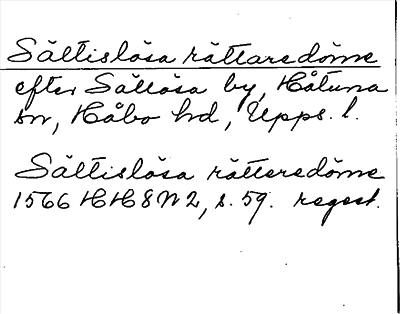 Sältislösa rättaredöme
efter Sältösa by, Håtuna
sn, Håbo hd, Upps. l.
Sältislösa rätteredöme
1566 HH8N2, s. 59. regest.